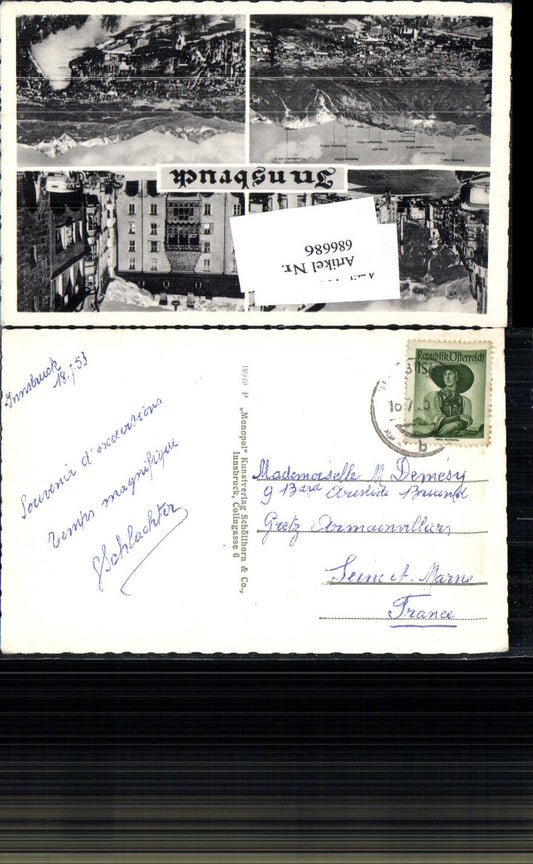 Innsbruck
Artikel Nr.
686686
Innsbruck
18.7.53
Souvenir d'excursions
temps magnifique
Schlachter
19949 P „Monopol" Kunstverlag Schöllhorn & Co.,
Innsbruck, Colingasse 6
Republik Österreich
1S
b
Mademoiselle M Demésy
9 Bard Aristide Bruand
Gretz Armainvilliers
Seine et Marne
France